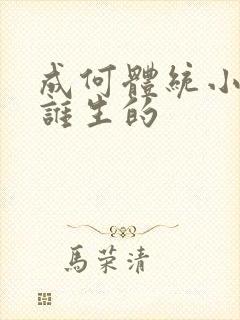 成何體統小
誰生的
馬荣清